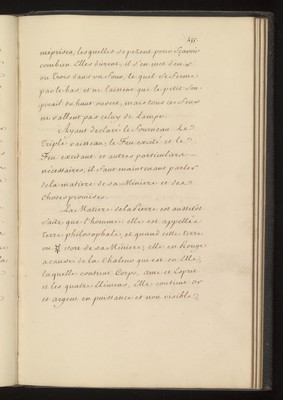 meprises, lesquelles se petent pour
combien Elles durent, il s'en met deux
ou trois dans un four, le quel se ferme
par le bas, et ne laissent que le petit sou-
pirail du haut ouvert, mais tous ces feux
ne vallent pas celuy de Lampe.
Ayant declaré le fourneau Le
Triple vaisseau, le Feu excité et le
Feu excitant et autres particuliers
necessaires, il faut maintenant parler
de la matiere de sa Miniere et des
choses promises.
La Matiere de la Pierre est aussitost
faite que l'homme; elle est appellée
terre philosophale, et quand cette terre
on tire de sa Miniere, elle est Rouge
a cause de la Chaleur qui est en Elle,
laquelle contient Corps, ame et Esprit
et les quatre Elemens, Elle contient or
et argent en puissance et non visible,